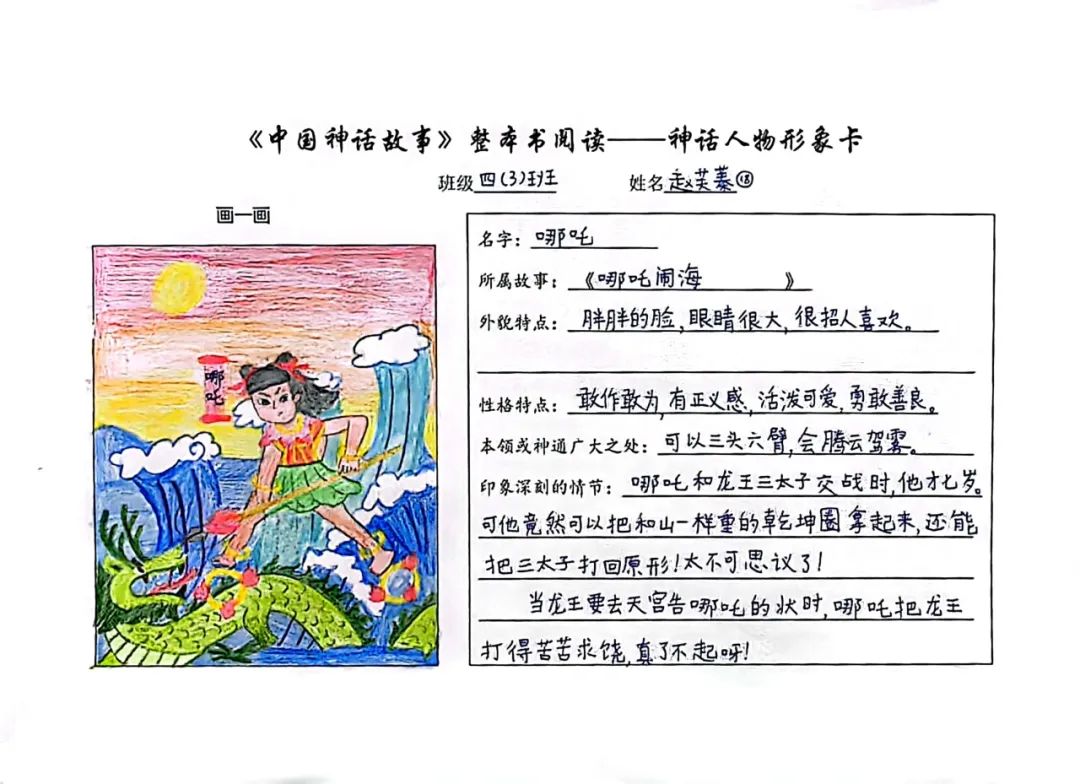 《中国神话故事》整本书阅读——神话人物形象卡
班级四(3)班 姓名赵芙蓁⑱
画一画
哪吒
名字：哪吒
所属故事：《哪吒闹海》
外貌特点：胖胖的脸，眼睛很大，很招人喜欢。
性格特点：敢作敢为，有正义感，活泼可爱，勇敢善良。
本领或神通广大之处：可以三头六臂，会腾云驾雾。
印象深刻的情节：哪吒和龙王三太子交战时，他才七岁。
可他竟然可以把和山一样重的乾坤圈拿起来，还能
把三太子打回原形！太不可思议了！
当龙王要去天宫告哪吒的状时，哪吒把龙王
打得苦苦求饶，真了不起呀！